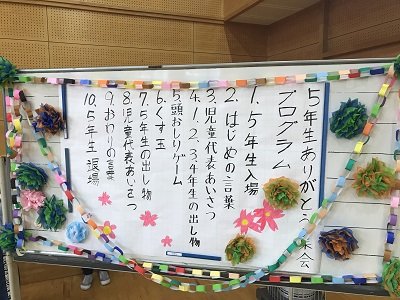 5年生ありがとう集会
プログラム
1.5年生入場
2.はじめの言葉
3.児童代表あいさつ
4.1、2、3、4年生の出し物
5.頭おしりゲーム
6.くす玉
7.5年生の出し物
8.児童代表あいさつ
9.おわりの言葉
10.5年生退場